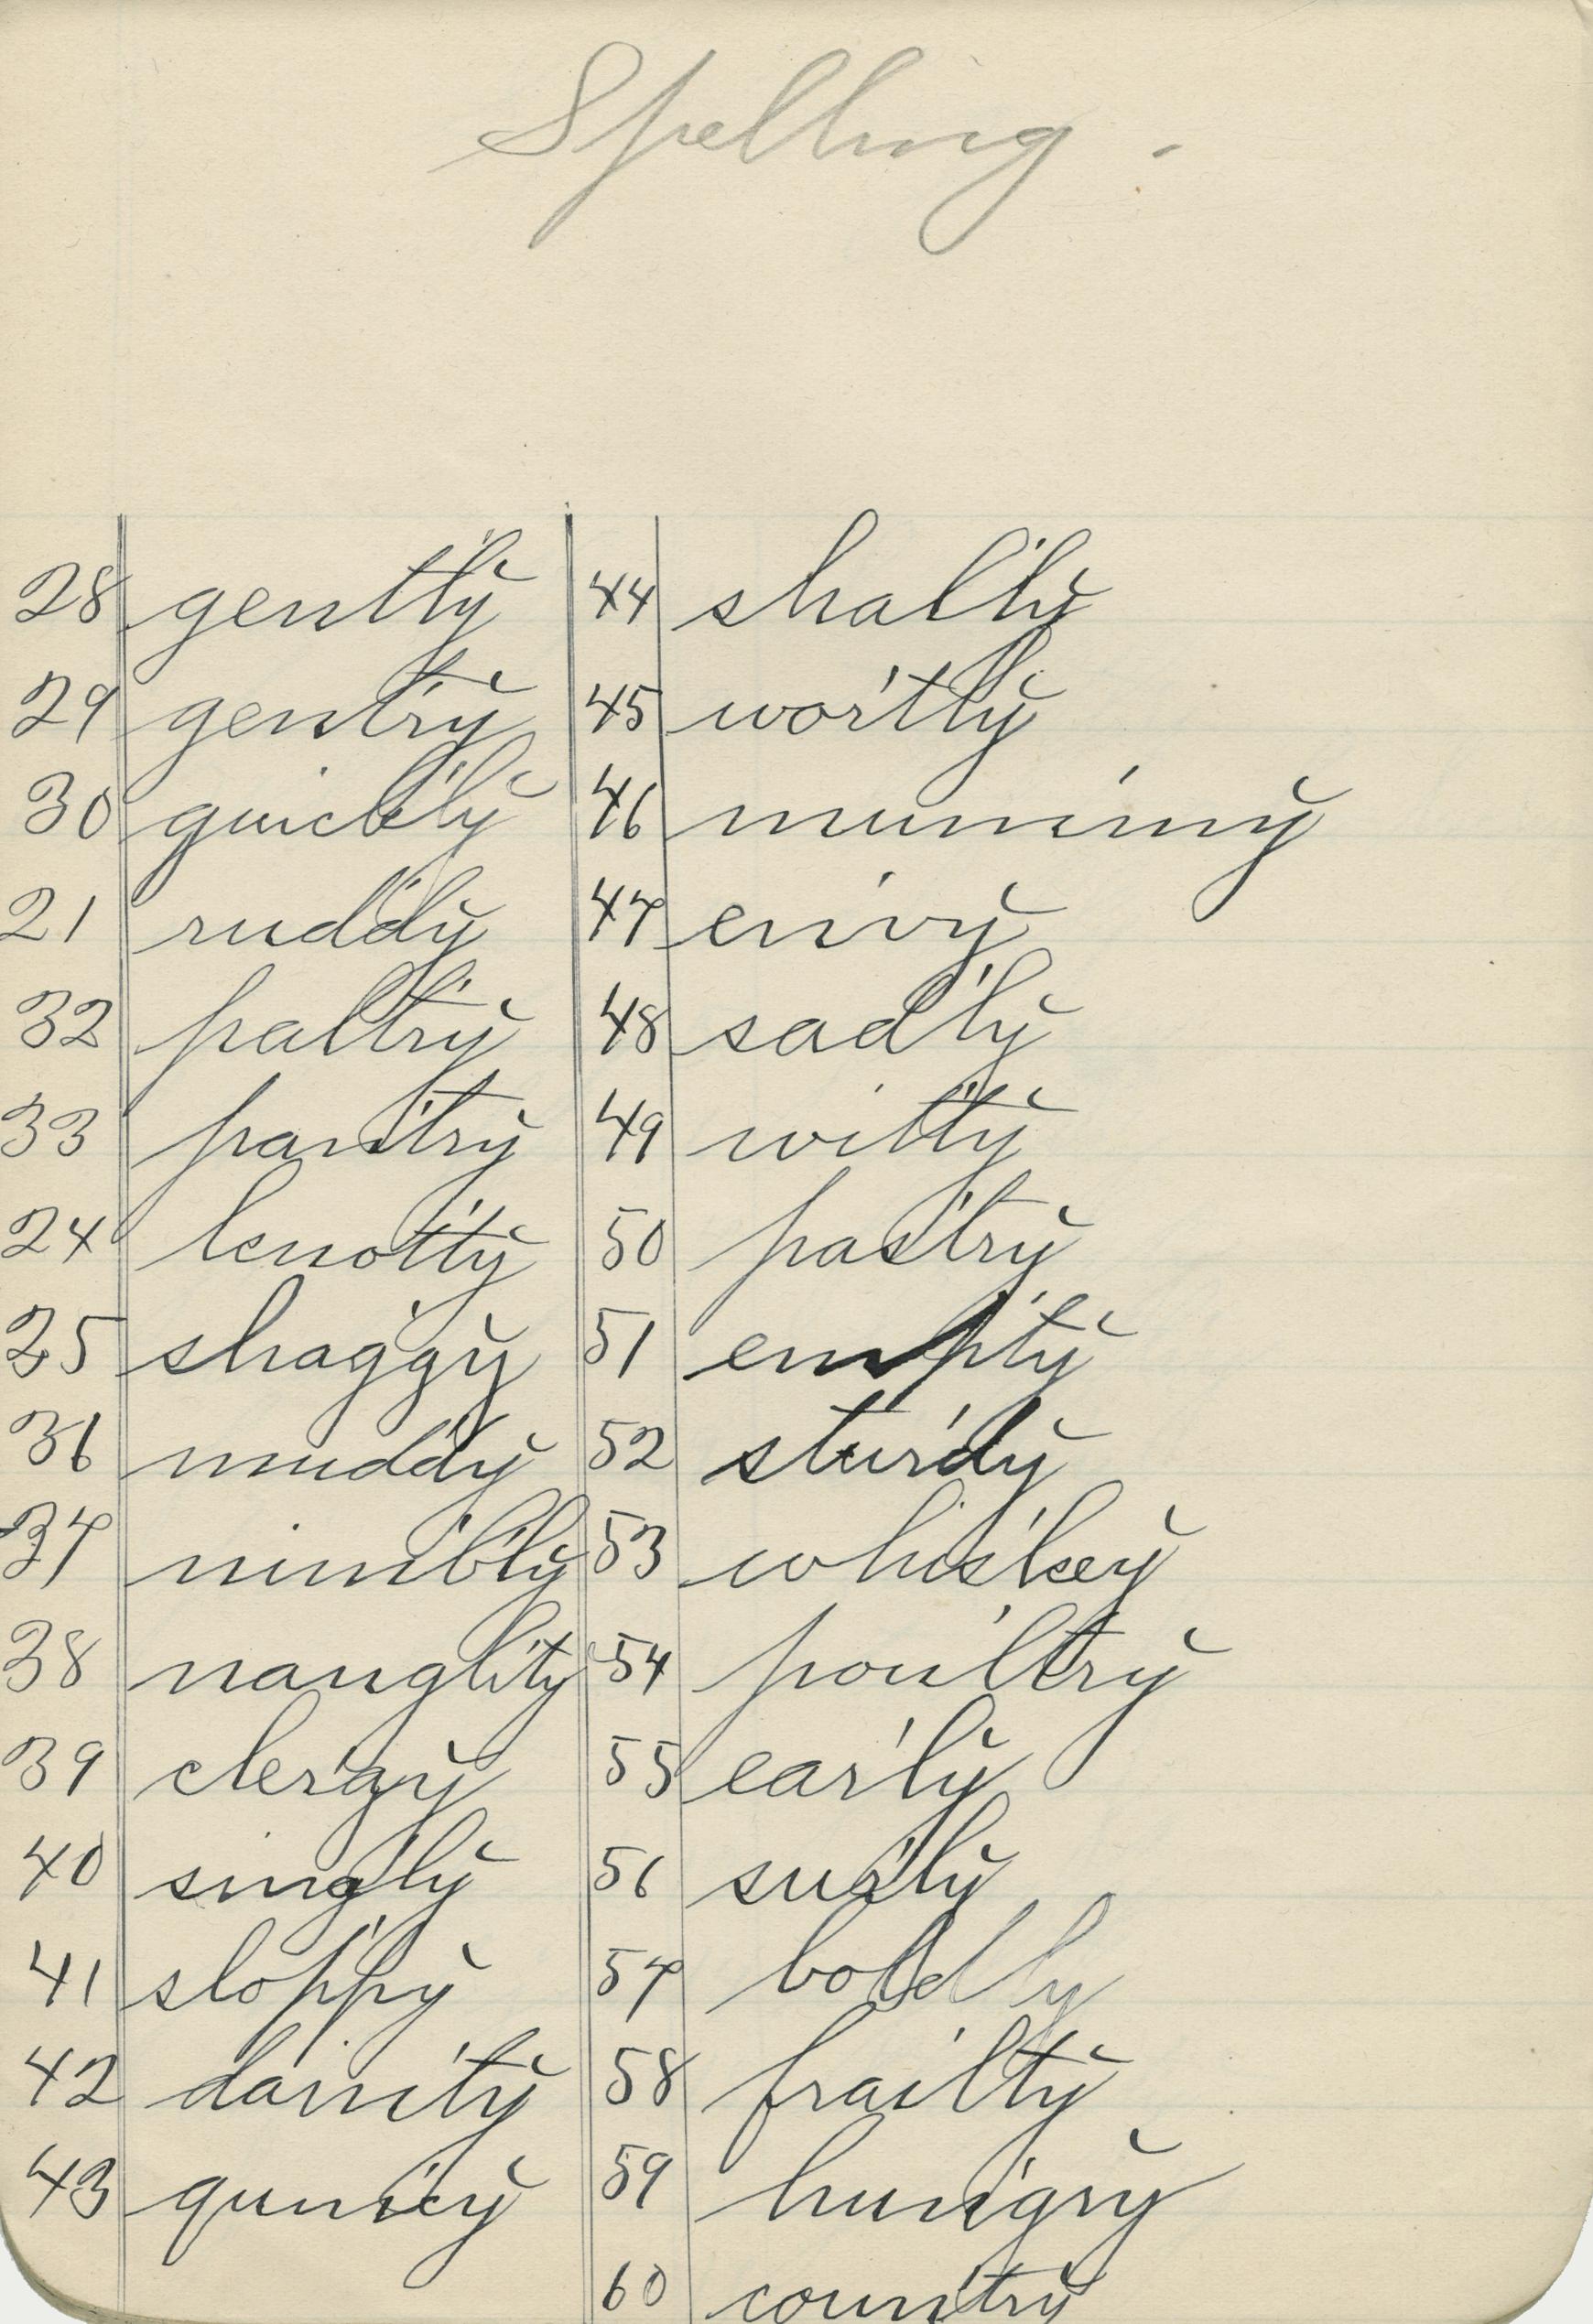 Spelling.
28 gently
29 gentry
30 quickly
21 ruddy
32 paltry
33 pantry
24 knotty
25 shaggy
36 muddy
37 nimbly
38 naughty
39 clergy
40 singly
41 sloppy
42 dainty
43 quincy
44 shally
45 wortly
46 mummy
47 envy
48 sadly
49 witty
50 pastry
51 empty
52 sturdy
53 whiskey
54 poultry
55 early
56 surly
57 boldly
58 frailty
59 hungry
60 country